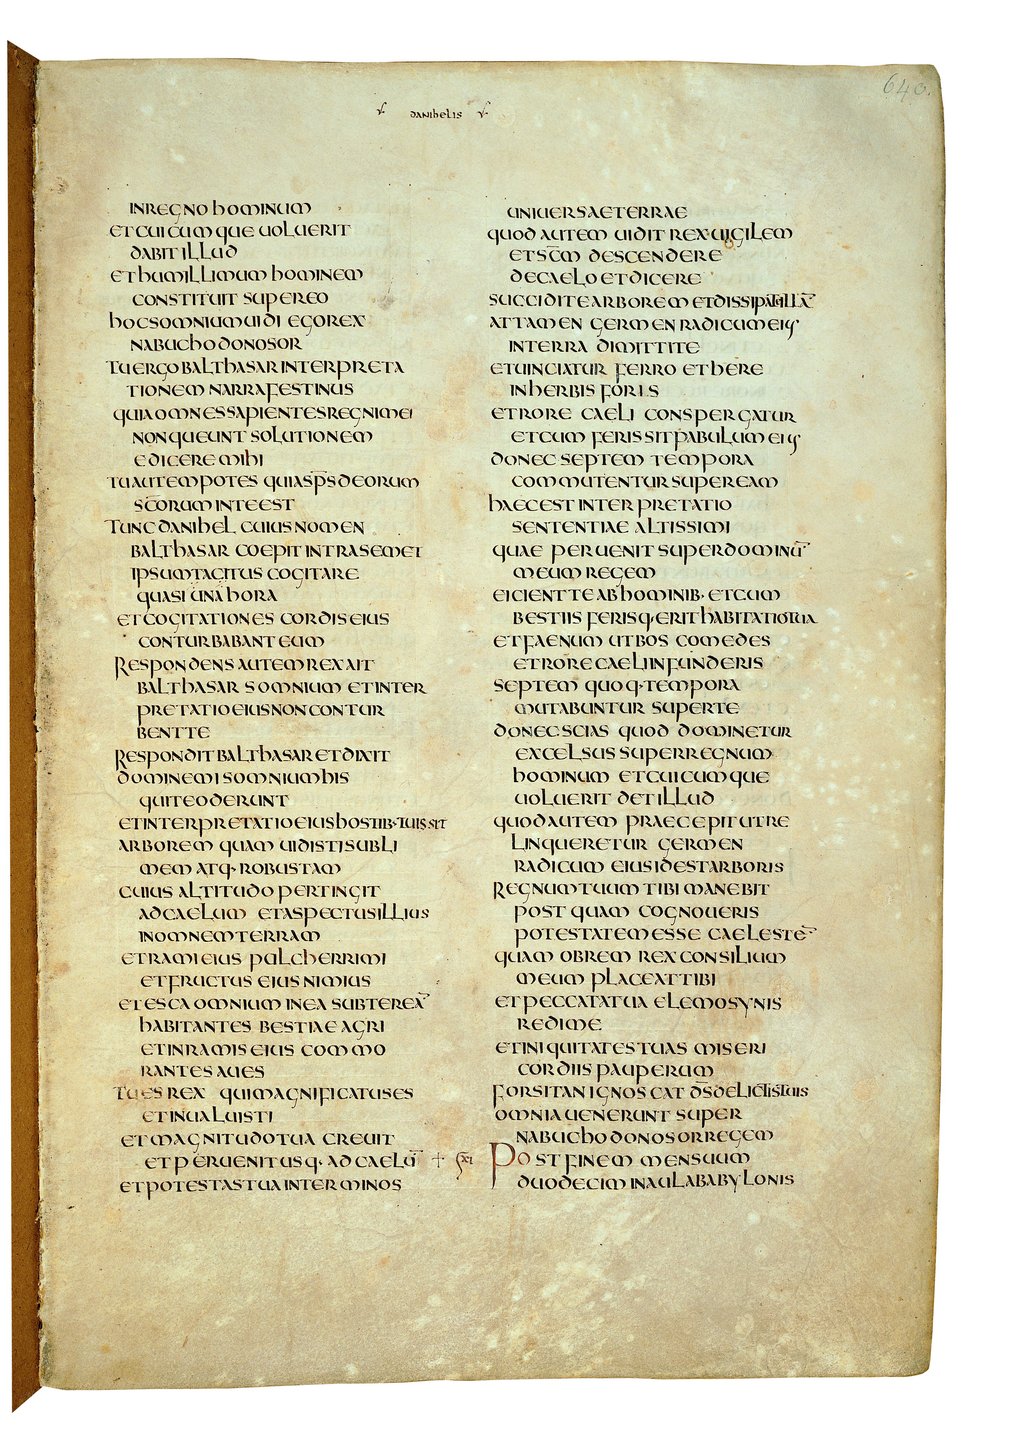 640.
danihelis
in regno hominum
et cuicumque uoluerit
dabit illud
et humillimum hominem
constituit super eo
hoc somnium uidi ego rex
nabuchodonosor
Tu ergo balthasar interpreta
tionem narra festinus
quia omnes sapientes regni mei
non queunt solutionem
edicere mihi
Tu autem potes quia sp̅s deorum
sc̅orum in te est
Tunc danihel cuius nomen
balthasar coepit intra semet
ipsum tacitus cogitare
quasi una hora
et cogitationes cordis eius
conturbabant eum
Respondens autem rex ait
balthasar somnium et inter
pretatio eius non contur
bent te
Respondit balthasar et dixit
domine mi somnium his
qui te oderunt
et interpretatio eius hostib· tuis sit
arborem quam uidisti subli
mem atq· robustam
cuius altitudo pertingit
ad caelum et aspectus illius
in omnem terram
et rami eius pulcherrimi
et fructus eius nimius
et esca omnium in ea subter ea̅
habitantes bestiae agri
et in ramis eius commo
rantes aues
Tu es rex qui magnificatus es
et inualuisti
et magnitudo tua creuit
et peruenit usq· ad caelu̅
et potestas tua in terminos
uniuersae terrae
quod autem uidit rex uigilem
et sc̅m descendere
de caelo et dicere
succidite arborem et dissipate illa̅
attamen germen radicum eius
in terra dimittite
et uinciatur ferro et here
in herbis foris
et rore caeli conspergatur
et cum feris sit pabulum eius
donec septem tempora
commutentur super eam
haec est interpretatio
sententiae altissimi
quae peruenit super dominu̅
meum regem
eicient te ab hominib· et cum
bestiis feris q· erit habitatio tua
et faenum ut bos comedes
et rore caeli infunderis
septem quoq· tempora
mutabuntur super te
donec scias quod dominetur
excelsus super regnum
hominum et cuicumque
uoluerit det illud
quod autem praecepit ut re
linqueretur germen
radicum eius id est arboris
Regnum tuum tibi manebit
postquam cognoueris
potestatem esse caeleste̅
quam obrem rex consilium
meum placeat tibi
et peccata tua elemosynis
redime
et iniquitates tuas miseri
cordiis pauperum
forsitan ignoscat d̅s delictis tuis
omnia uenerunt super
nabuchodonosor regem
xi Post finem mensuum
duodecim in aula babylonis